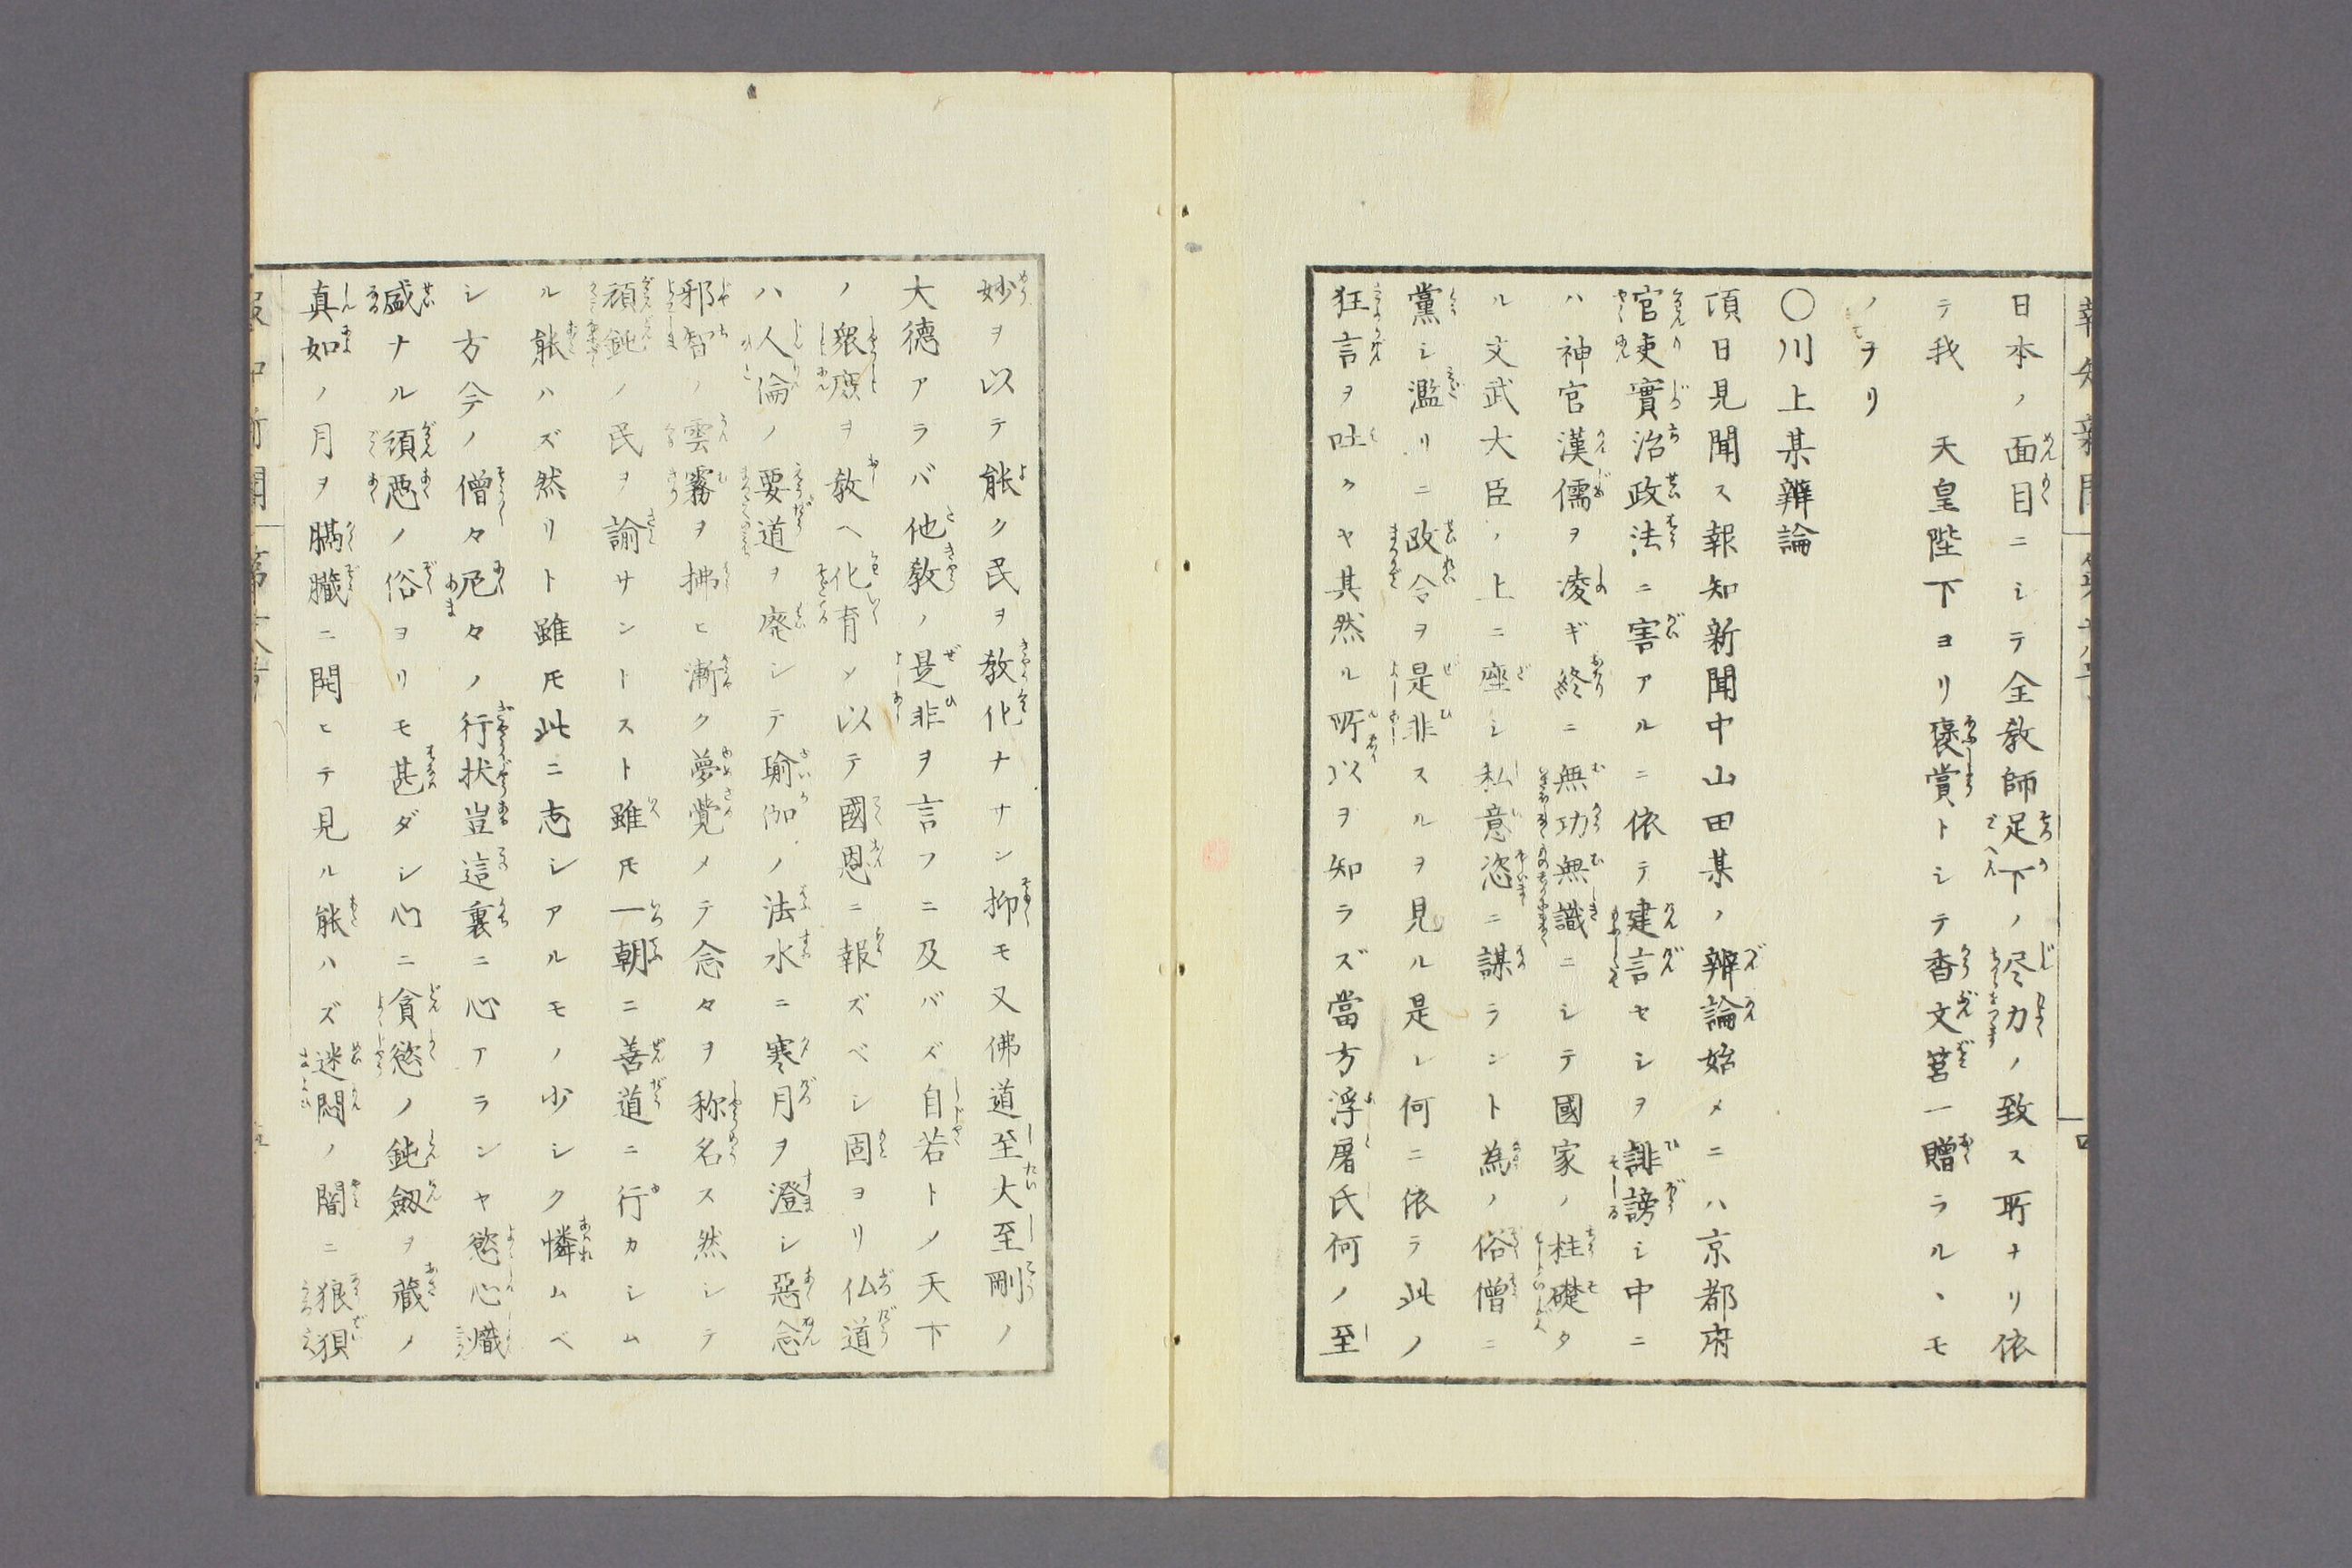 日本ノ面目ニシテ全教師足下ノ尽力ノ致ス所ナリ依
テ我　天皇陛下ヨリ褒賞トシテ香文筥一贈ラルヽモ
ノヲリ
〇川上某辨論
頃日見聞ス報知新聞中山田某ノ辨論始メニハ京都府
官吏實治政法ニ害アルニ依テ建言セシヲ誹謗シ中ニ
ハ神官漢儒ヲ凌ギ終ニ無功無識ニシテ國家ノ柱礎タ
ル文武大臣ノ上ニ座シ私意恣ニ謀ラントノ為ノ俗僧ニ
黨シ濫リニ政令ヲ是非スルヲ見ル是レ何ニ依テ此ノ
狂言ヲ吐クヤ其然ル所以ヲ知ラズ當方浮屠氏何ノ至
妙ヲ以テ能ク民ヲ教化ナサン抑モ又佛道至大至剛ノ
大徳アラバ他教ノ是非ヲ言フニ及バズ自若トノ天下
ノ衆庶ヲ教ヘ化育メ以テ國恩ニ報ズベシ固ヨリ仏道
ハ人倫ノ要道ヲ廃シテ瑜伽ノ法水ニ寒月ヲ澄シ惡念
邪智ノ雲霧ヲ拂ヒ漸ク夢覚メテ念々ヲ称名ス然シテ
頑鈍ノ民ヲ諭サントスト雖モ一朝ニ善道ニ行カシム
ル能ハズ然リト雖モ此ニ志シアルモノ少シク憐ムベ
シ方今ノ僧々尼々ノ行状豈這裏ニ心アランヤ慾心熾
盛ナル頑悪ノ俗ヨリモ甚ダシ心ニ貪慾ノ鈍劔ヲ藏ノ
真如ノ月ヲ膈臓ニ開ヒテ見ル能ハズ迷悶ノ闇ニ狼狽